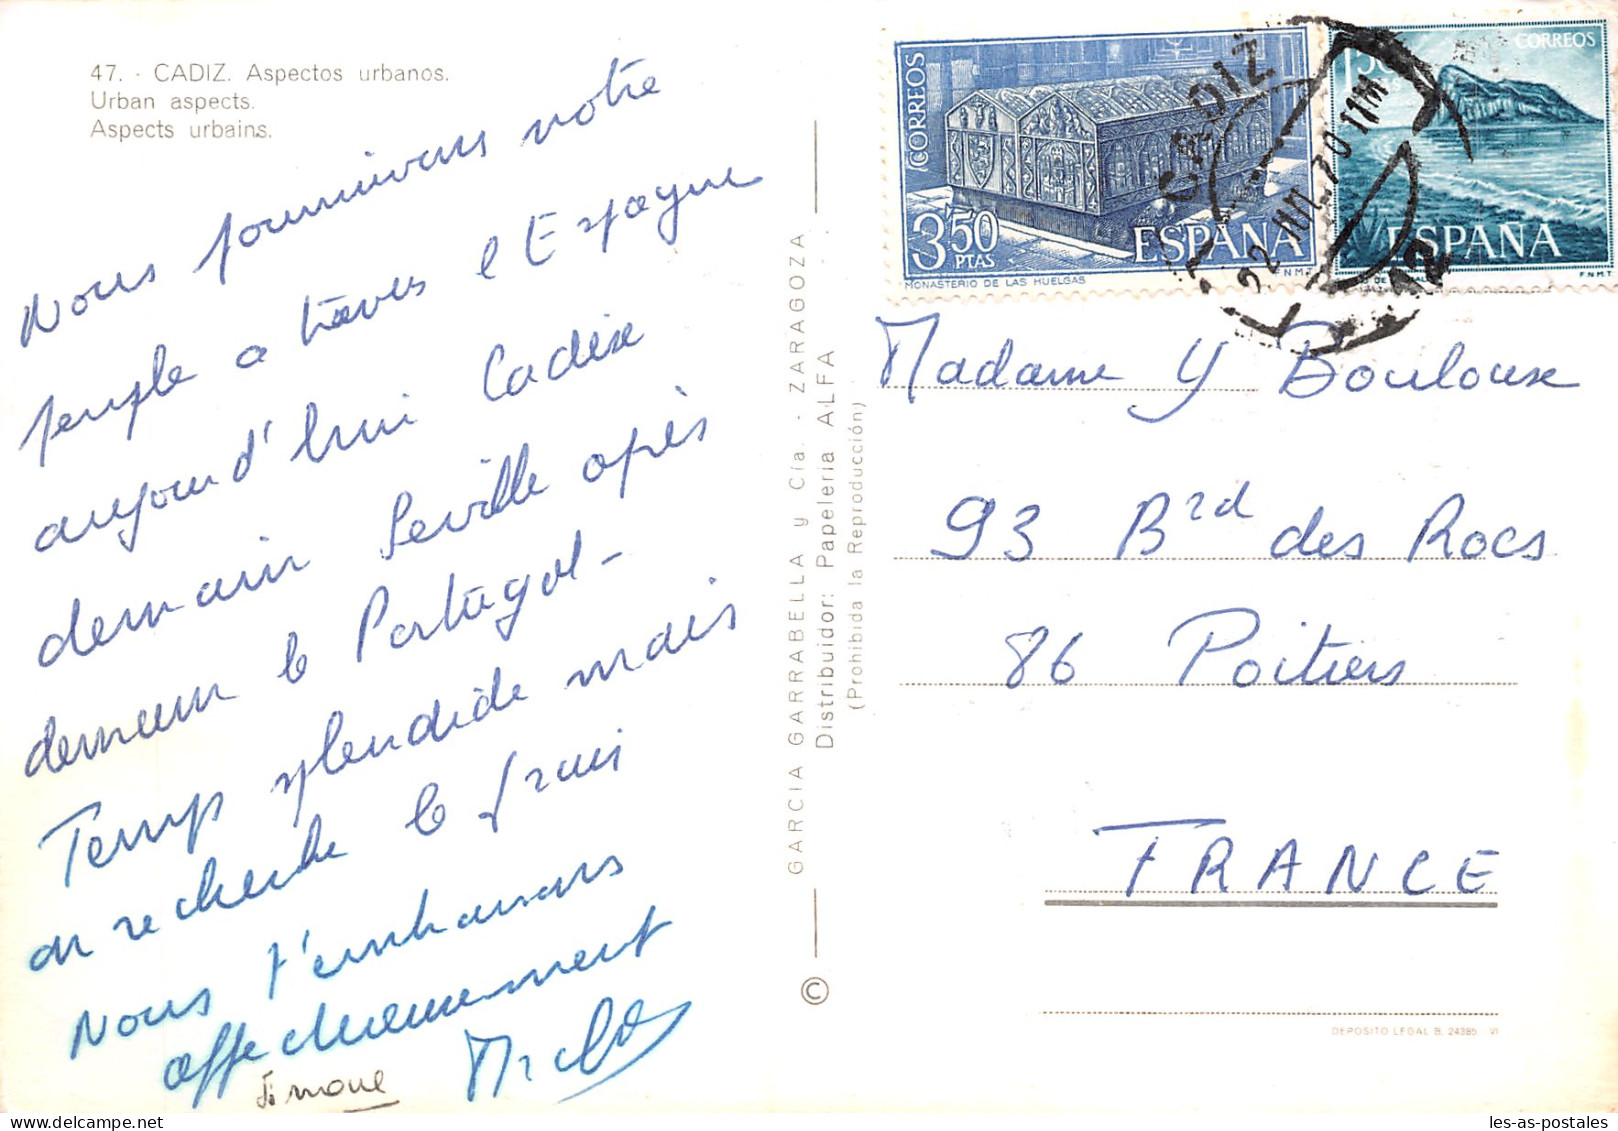 47. - CADIZ. Aspectos urbanos.
Urban aspects.
Aspects urbains.
Nous poursuivons notre
periple a travers l'Espagne
aujourd'hui Cadix
demain Seville après
demain le Portugal -
Temps splendide mais
on recherche le frais
Nous t'embrassons
affectueusement
Simone
GARCIA GARRABELLA y Cía. - ZARAGOZA
Distribuidor: Papeleria ALFA
(Prohibida la Reproducción)
©
CORREOS
3,50
PTAS
ESPAÑA
F.N.M.T.
MONASTERIO DE LAS HUELGAS
CORREOS
1,50
ESPAÑA
F.N.M.T.
CADIZ
22 JUL. 70 11M
Madame Y Bouloux
93 Brd des Rocs
86 Poitiers
FRANCE
DEPOSITO LEGAL B. 24385 VI
les-as-postales